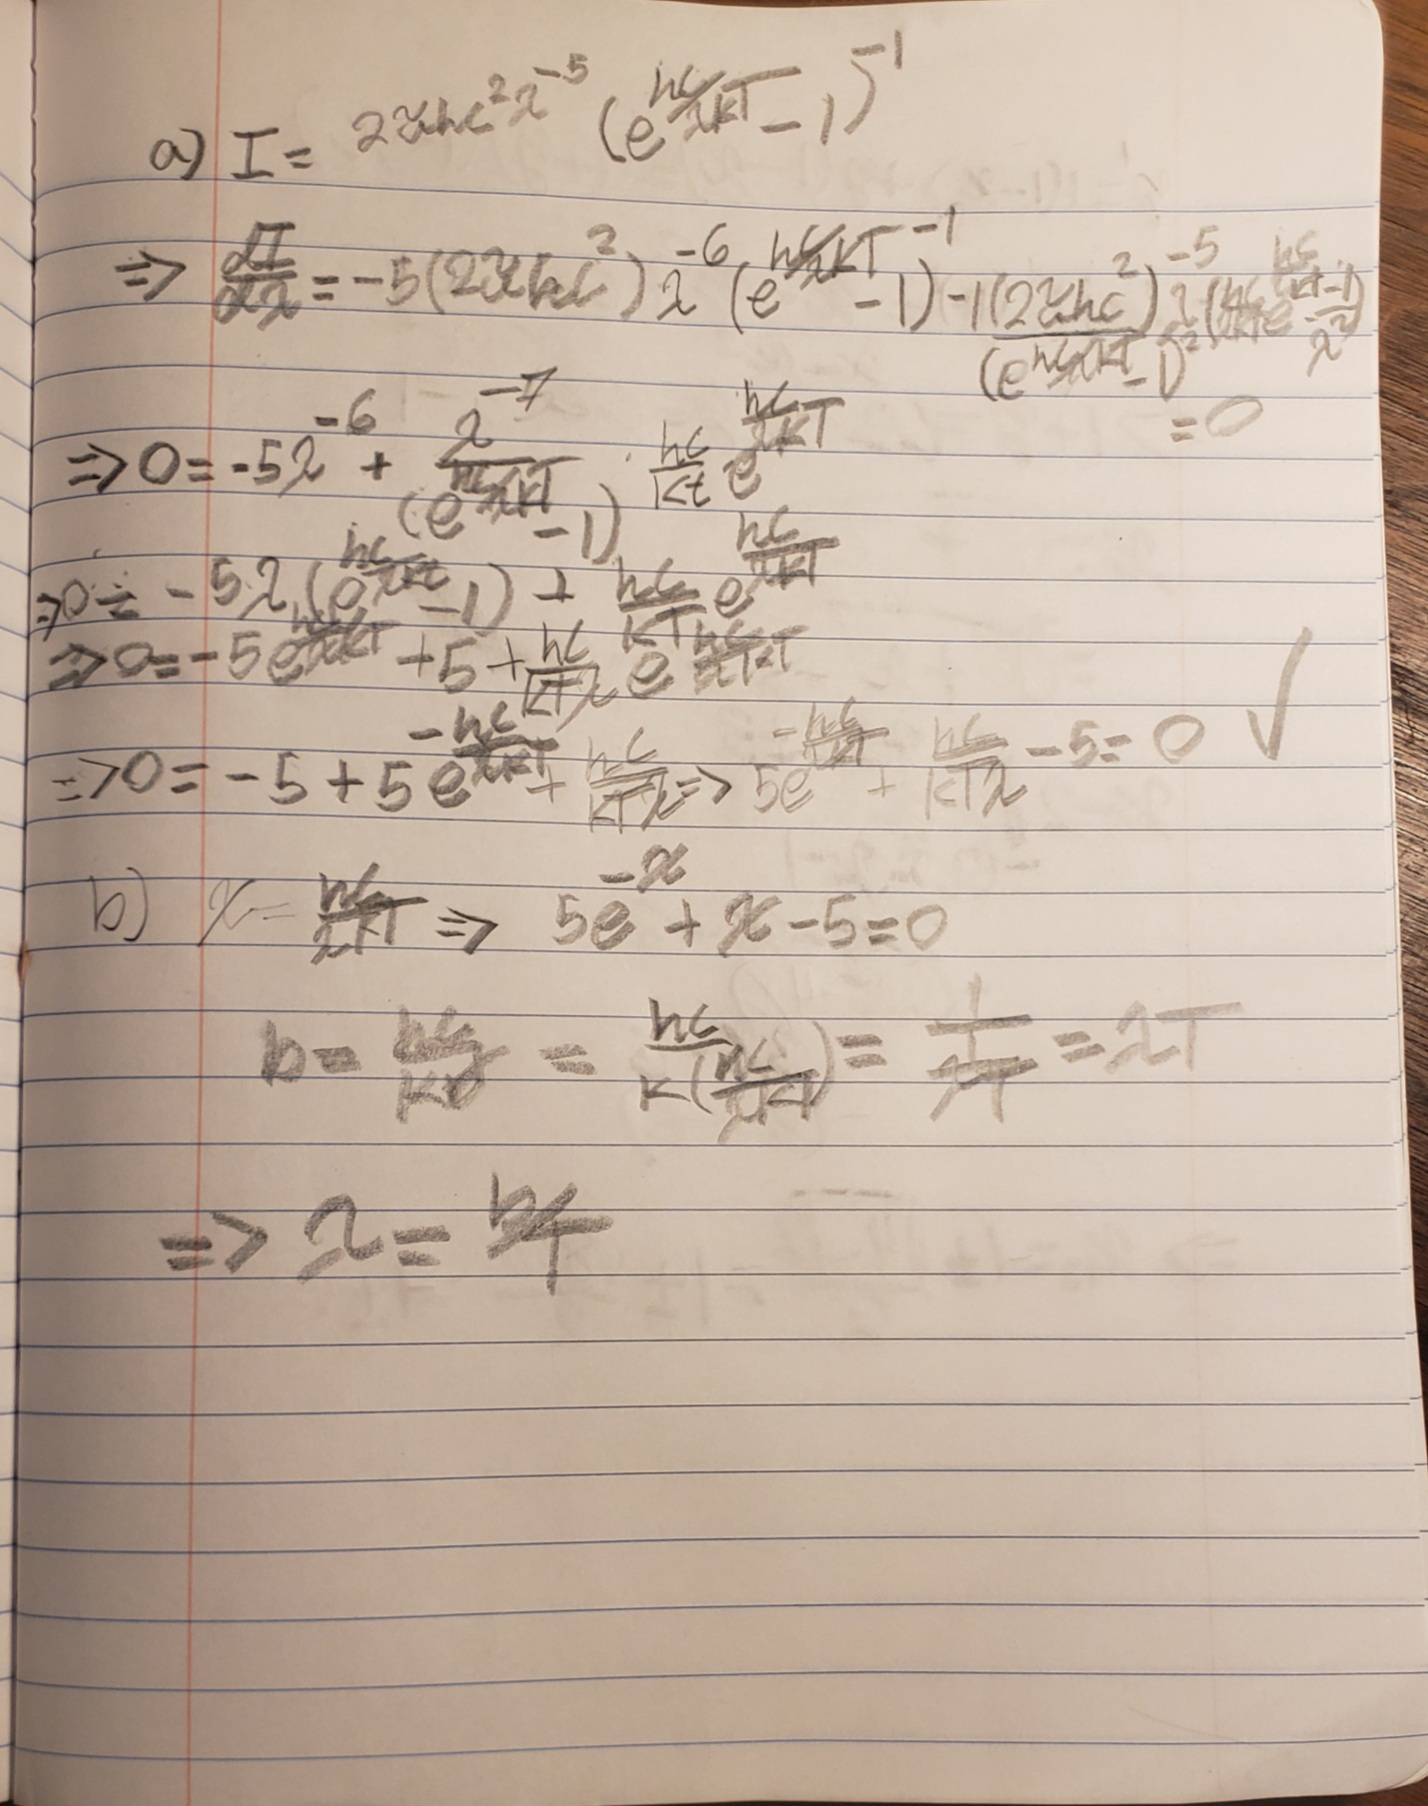 a) I = 2πhc²λ⁻⁵ (e^(hc/λkT) - 1)⁻¹
=> dI/dλ = -5(2πhc²)λ⁻⁶ (e^(hc/λkT) - 1)⁻¹ - 1(2πhc²)λ⁻⁵/(e^(hc/λkT) - 1)²
= 0
=> 0 = -5λ⁻⁶ + λ⁻⁷/(e^(hc/λkT) - 1) · hc/kt e^(hc/λkT)
=> 0 = -5λ(e^(hc/λkt) - 1) + hc/kT e^(hc/λkT)
=> 0 = -5e^(hc/λkT) + 5 + hc/kTλ e^(hc/λkT)
=> 0 = -5 + 5e^(-hc/λkT) + hc/kTλ => 5e^(-hc/λkT) + hc/kTλ - 5 = 0 ✓
b) x = hc/λkT => 5e^(-x) + x - 5 = 0
b = hc/kx = hc/k(hc/λkT) = 1/(1/λT) = λT
=> λ = b/T